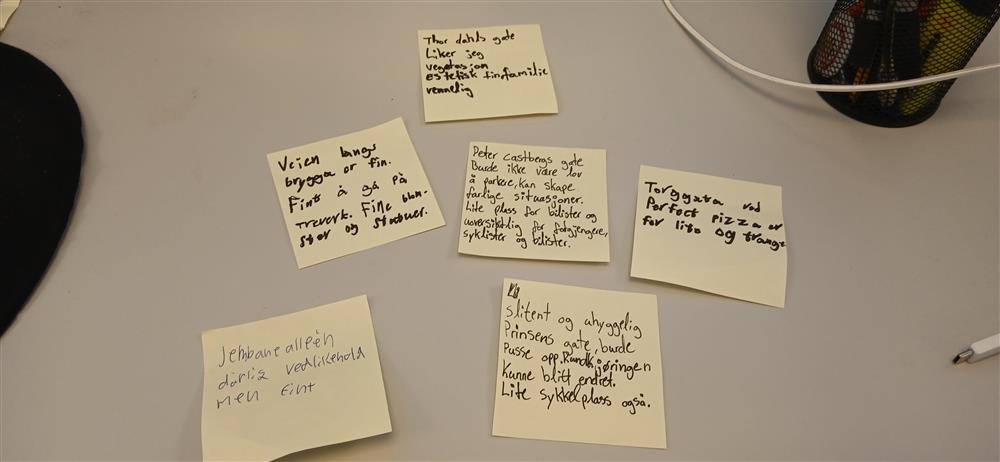 Thor dahls gate
Liker jeg
vegetasjon
estetisk fin, familie
vennelig
Veien langs
brygga er fin.
Fint å gå på
treverk. Fine blom-
ster og statuer.
Peter castbergs gate
Burde ikke være lov
å parkere, kan skape
farlige situasjoner.
Lite plass for bilister og
uoversiktlig for fotgjengere,
syklister og bilister.
Torggata ved
Perfect pizza er
for lite og trange
Jernbane alleén
dårlig vedlikehold
men fint
Slitent og uhyggelig
Prinsens gate, burde
Pusse opp. Rundkjøringen
Kunne blitt endret.
Lite sykkelplass også.